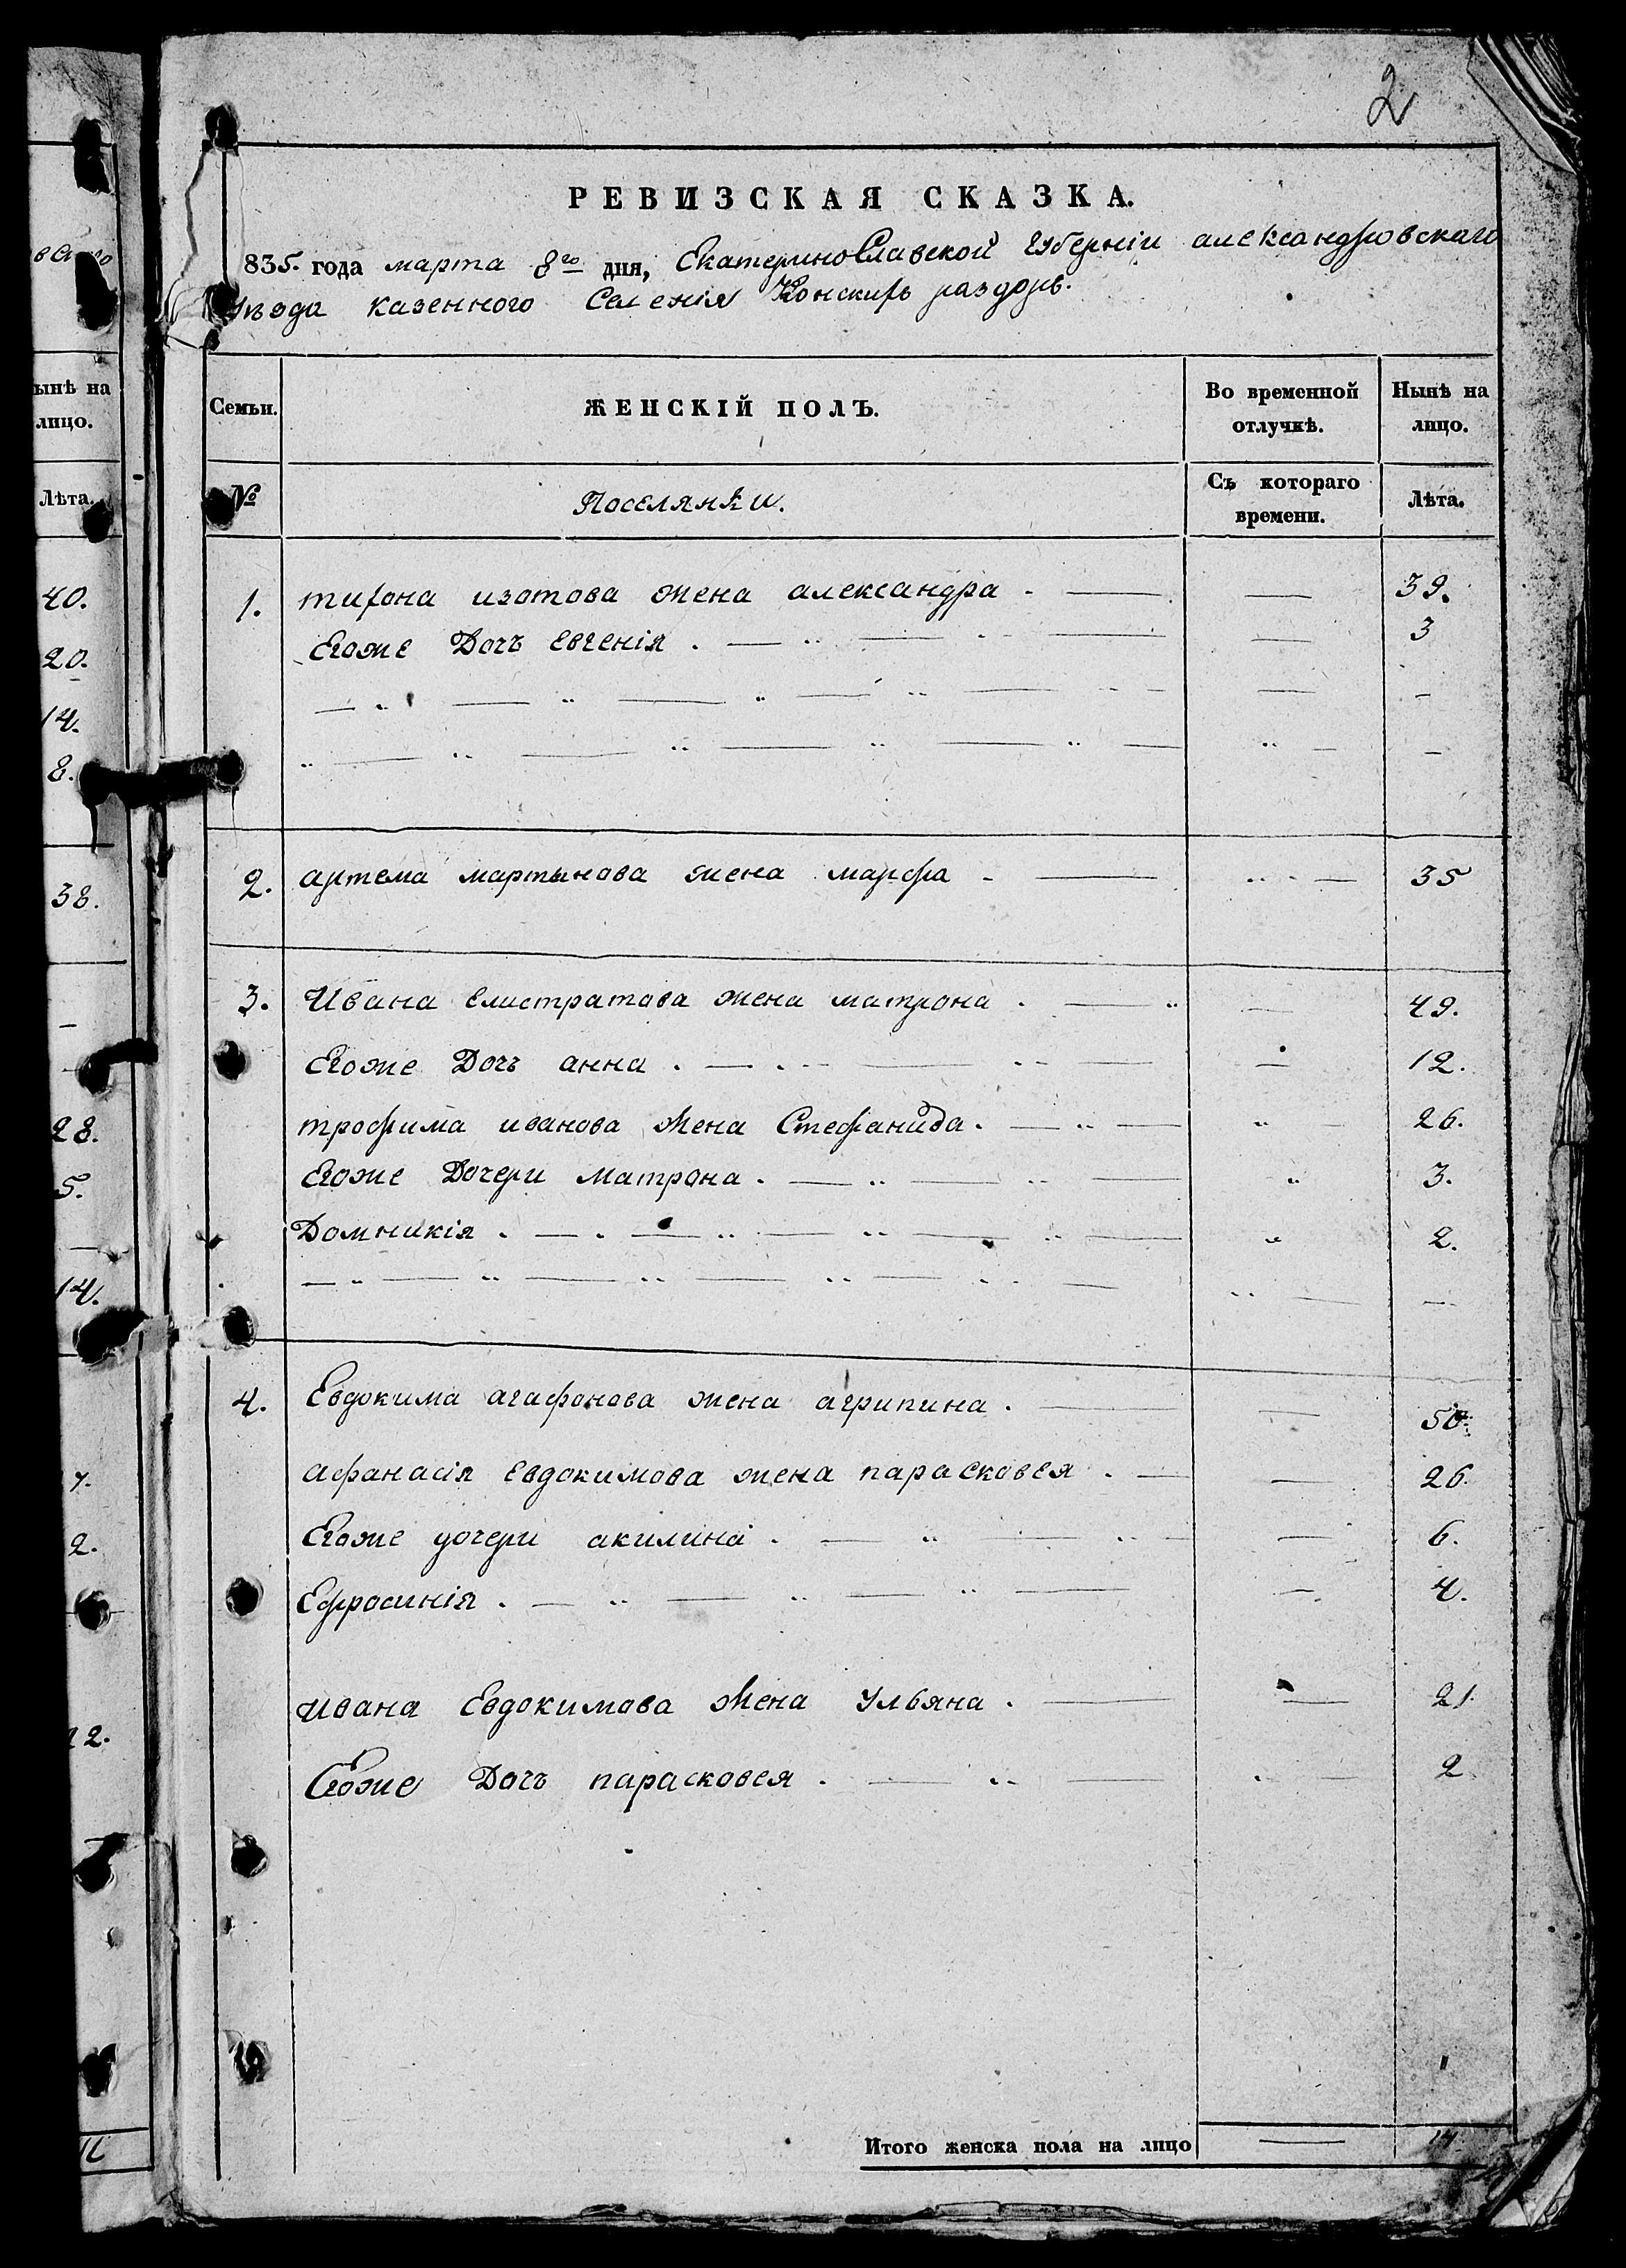 2
РЕВИЗСКАЯ СКАЗКА.
835. года марта 8го дня, Екатеринославской Губерніи александровскаго
Уѣзда казенного Селенія Конских раздоръ.
ынѣ на
лицо.
Лѣта.
Семьи. ЖЕНСКІЙ ПОЛЪ. Во временной отлучкѣ. Нынѣ на лицо.
№ Поселянки. Съ котораго времени. Лѣта.
40.
20.
14.
8.
38.
28.
5.
14.
7.
2.
2.
1. тихона изотова жена александра . — — 39.
Егоже Дочь евгенія . — — 3
2. артема мартынова жена марфа - — — 35
3. Ивана елистратова жена матрона . — — 49.
Егоже Дочь анна . — — 12.
трофима иванова жена Стефанида . — — 26.
Егоже Дочери матрона . — „ 3.
Домникія . — „ 2.
4. Евдокима агафонова жена агрипина . — — 50.
афанасія евдокимова жена парасковея . — — 26.
Егоже дочери акилина . — — 6.
Ефросинія . — — 4.
ивана Евдокимова жена Ульяна . — — 21.
Егоже Дочь парасковея . — — 2
Итого женска пола на лицо — 14.